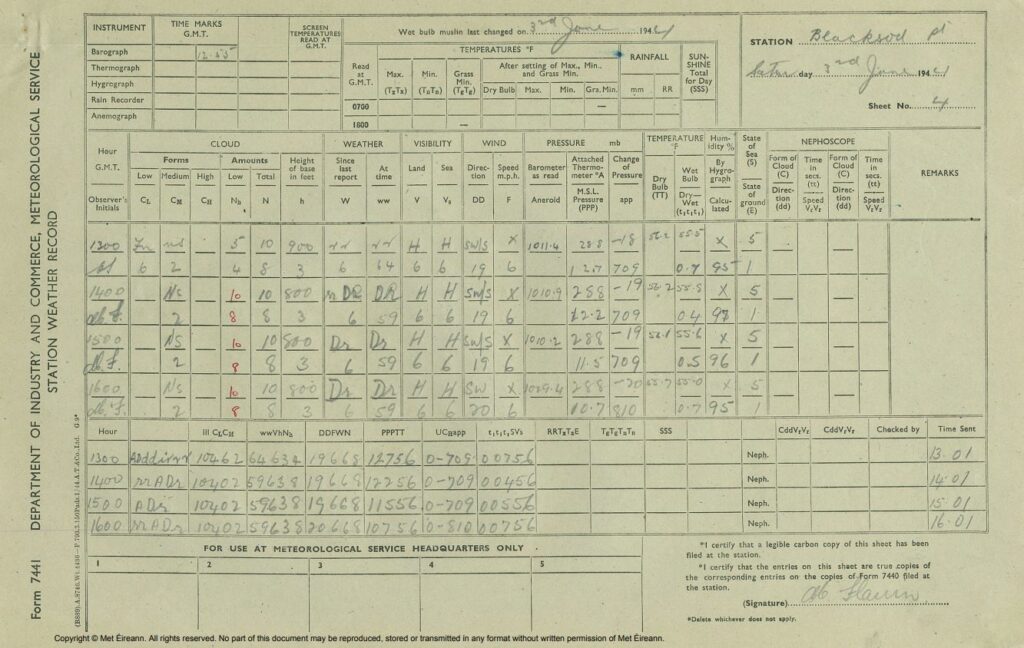 Form 7441 DEPARTMENT OF INDUSTRY AND COMMERCE, METEOROLOGICAL SERVICE
STATION WEATHER RECORD
INSTRUMENT TIME MARKS G.M.T. SCREEN TEMPERATURES READ AT G.M.T.
Barograph 12.45
Thermograph
Hygrograph
Rain Recorder
Anemograph
Wet bulb muslin last changed on 3rd June 1944
TEMPERATURES °F RAINFALL SUNSHINE Total for Day (SSS)
Read at G.M.T. Max. (TxTx) Min. (TnTn) Grass Min. (TgTg) After setting of Max., Min., and Grass Min. mm RR
Dry Bulb Max. Min. Gra. Min.
0700 —
1800 —
STATION Blacksod Pt
Satur day 3rd June 1944
Sheet No. 4
Hour G.M.T. CLOUD WEATHER VISIBILITY WIND PRESSURE mb TEMPERATURE °F Humidity % State of Sea (S) NEPHOSCOPE REMARKS
Forms Amounts Height of base in feet Since last report At time Land Sea Direction Speed m.p.h. Barometer as read Attached Thermometer °A Change of Pressure Dry Bulb (TT) Wet Bulb By Hygrograph State of ground (E) Form of Cloud (C) Time in secs. (tt) Form of Cloud (C) Time in secs. (tt)
Low Medium High Low Total
Observer's Initials CL CM CH Nh N h W ww V Vs DD F Aneroid M.S.L. Pressure (PPP) app Dry—Wet (t,t,t,) Calculated Direction (dd) Speed VzVz Direction (dd) Speed VzVz
1300 ns 5 10 900 rr rr H H SW/S X 1011.4 288 -18 56.2 55.5 X 5
6 2 4 8 3 6 64 6 6 19 6 12.7 709 0.7 95 1
1400 — Ns — 10 10 800 DR H H SW/S X 1010.9 288 -19 56.2 55.8 X 5
2 8 8 3 6 59 6 6 19 6 12.2 709 0.4 98 1
1500 — Ns — 10 10 800 Dr Dr H H SW/S X 1010.2 288 -19 56.1 55.6 X 5
2 8 8 3 6 59 6 6 19 6 11.5 709 0.5 96 1
1600 — Ns — 10 10 800 Dr Dr H H SW X 1009.4 288 -20 55.7 55.0 X 5
2 8 8 3 6 59 6 6 20 6 10.7 810 0.7 95 1
Hour III CLCM wwVhNh DDFWN PPPTT UCHapp t,t,t,SVs RRTxTxE TgTgTnTn SSS CddVzVz CddVzVz Checked by Time Sent
1300 10462 64634 19668 12756 0-709 00756 Neph. 13.01
1400 10402 59638 19668 12256 0-709 00456 Neph. 14.01
1500 ADr 10402 59638 19668 11556 0-709 00556 Neph. 15.01
1600 10402 59638 20668 10756 0-810 00756 Neph. 16.01
FOR USE AT METEOROLOGICAL SERVICE HEADQUARTERS ONLY
1 2 3 4 5
*I certify that a legible carbon copy of this sheet has been filed at the station.
*I certify that the entries on this sheet are true copies of the corresponding entries on the copies of Form 7440 filed at the station.
(Signature)
*Delete whichever does not apply.
Copyright © Met Éireann. All rights reserved. No part of this document may be reproduced, stored or transmitted in any format without written permission of Met Éireann.